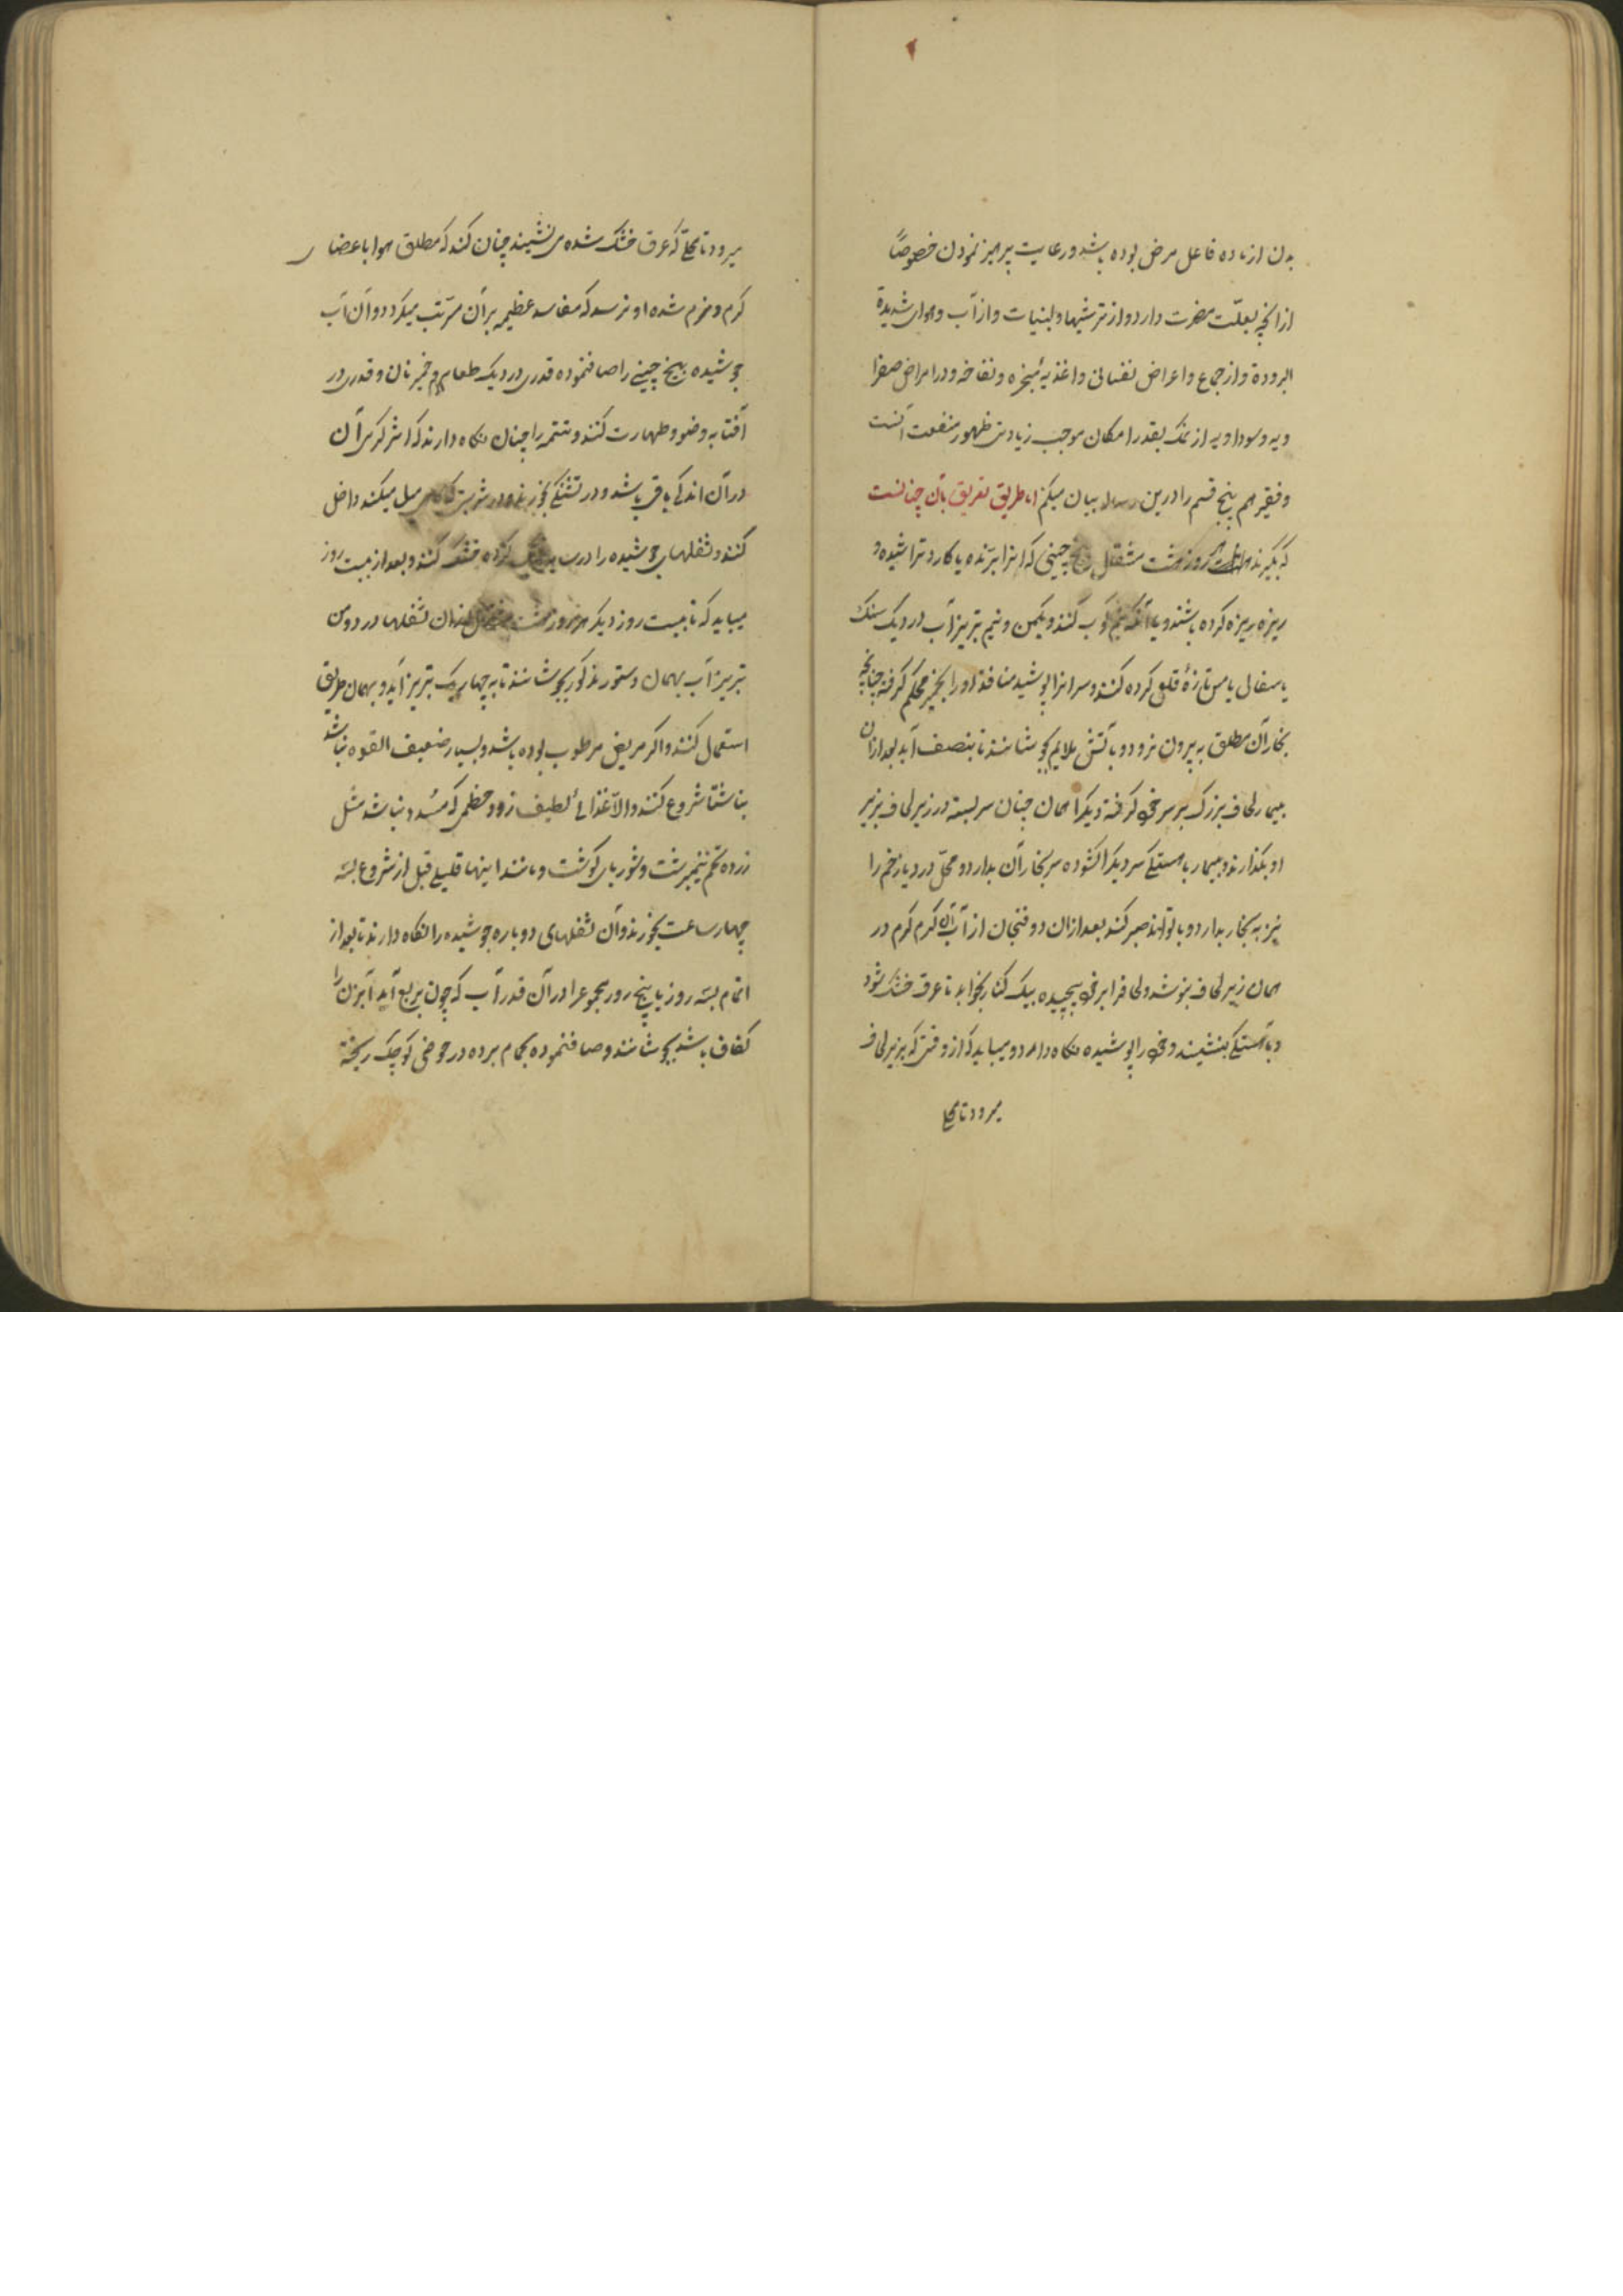 بدن از ماده فاعل مرض بوده باشد و رعایت پرهیز نمودن خصوصاً
از انچه بعلّت مضرت دارد و از ترشیها و لبنیات و از آب و هوای شدیدة
البرودة و از جماع و اعراض نفسانی و اغذیه مبخره و نفاخه و در امراض صفرا
ویه و سوداویه از نمک بقدر امکان موجب زیادتی ظهور منفعت آنست
و فقیر هم پنج قسم را درین رساله بیان میکنم اما طریق تعریق بآن چنانست
که بگیرند هر روز هشت مثقال بیخ چینی که انرا برنده یا کارد تراشیده و
ریزه ریزه کرده باشند و یا آنکه نیم کوب کنند و یکمن و نیم تبریز آب در دیک سنک
یا سفالی یا مس تازهٔ قلعی کرده کنند و سر انرا پوشیده منافذ او را بخمیر محکم کرفته چنانچه
بخار آن مطلق به بیرون نرود و بآتش ملایم بجوشانند تا بنصف آید بعد ازان
بیمار لحاف بزرک بر سر خود کرفته دیک را همان چنان سر بسته در زیر لحاف بزیر
او بگذارند و بیمار باهستکی سر دیک را کشوده سر بخار آن بدارد و محلّ درد یا زخم را
نیز به بخار بدارد و تا تواند صبر کند بعد ازان دو فنجان از آب آن کرم کرم در
همان زیر لحاف بنوشد و لحاف را بر خود پیچیده بیک کنار بخوابد تا عرق خشک شود
و بآهستکی بنشیند و خود را پوشیده نکاه دارد و میباید که از وقتی که بزیر لحاف
میرود تا محلی
میرود تا محلّی که عرق خشک شده می نشیند چنان کند که مطلق هوا باعضای
کرم و نرم شده او نرسد که مفاسد عظیمه بر آن مترتب میکردد و آن آب
جوشیده بیخ چینی را صاف نموده قدری در دیک طعام و خمیر نان و قدری در
آفتابه وضو و طهارت کنند و تتمه را چنان نکاه دارند که اثر کرمی آن
در آن اندکی باقی باشد و در تشنکی بخورند و در شربتی که میل میکند داخل
کنند و ثفلهای جوشیده را در سایه پهن کرده خشک کنند و بعد از بیست روز
میباید که تا بیست روز دیکر هر روز هشت مثقال ازان ثفلها در دو من
تبریز آب بهمان دستور مذکور بجوشانند تا به چهار یک تبریز آید و بهمان طریق
استعمال کنند و اکر مریض مرطوب بوده باشد و بسیار ضعیف القوه نباشد
بناشتا شروع کنند و الا غذائی لطیف زود هضمی که مسدد نباشد مثل
زرده تخم نیمبرشت و شوربای کوشت و مانند اینها قلیلی قبل از شروع بسه
چهار ساعت بخورند و آن ثفلهای دوباره جوشیده را نکاه دارند تا بعد از
اتمام بسه روز یا پنج روز مجموع را در آن قدر آب که چون بربع آید آبزن را
کفاف باشد بجوشانند و صاف نموده بحمام برده در حوضی کوچک ریخته